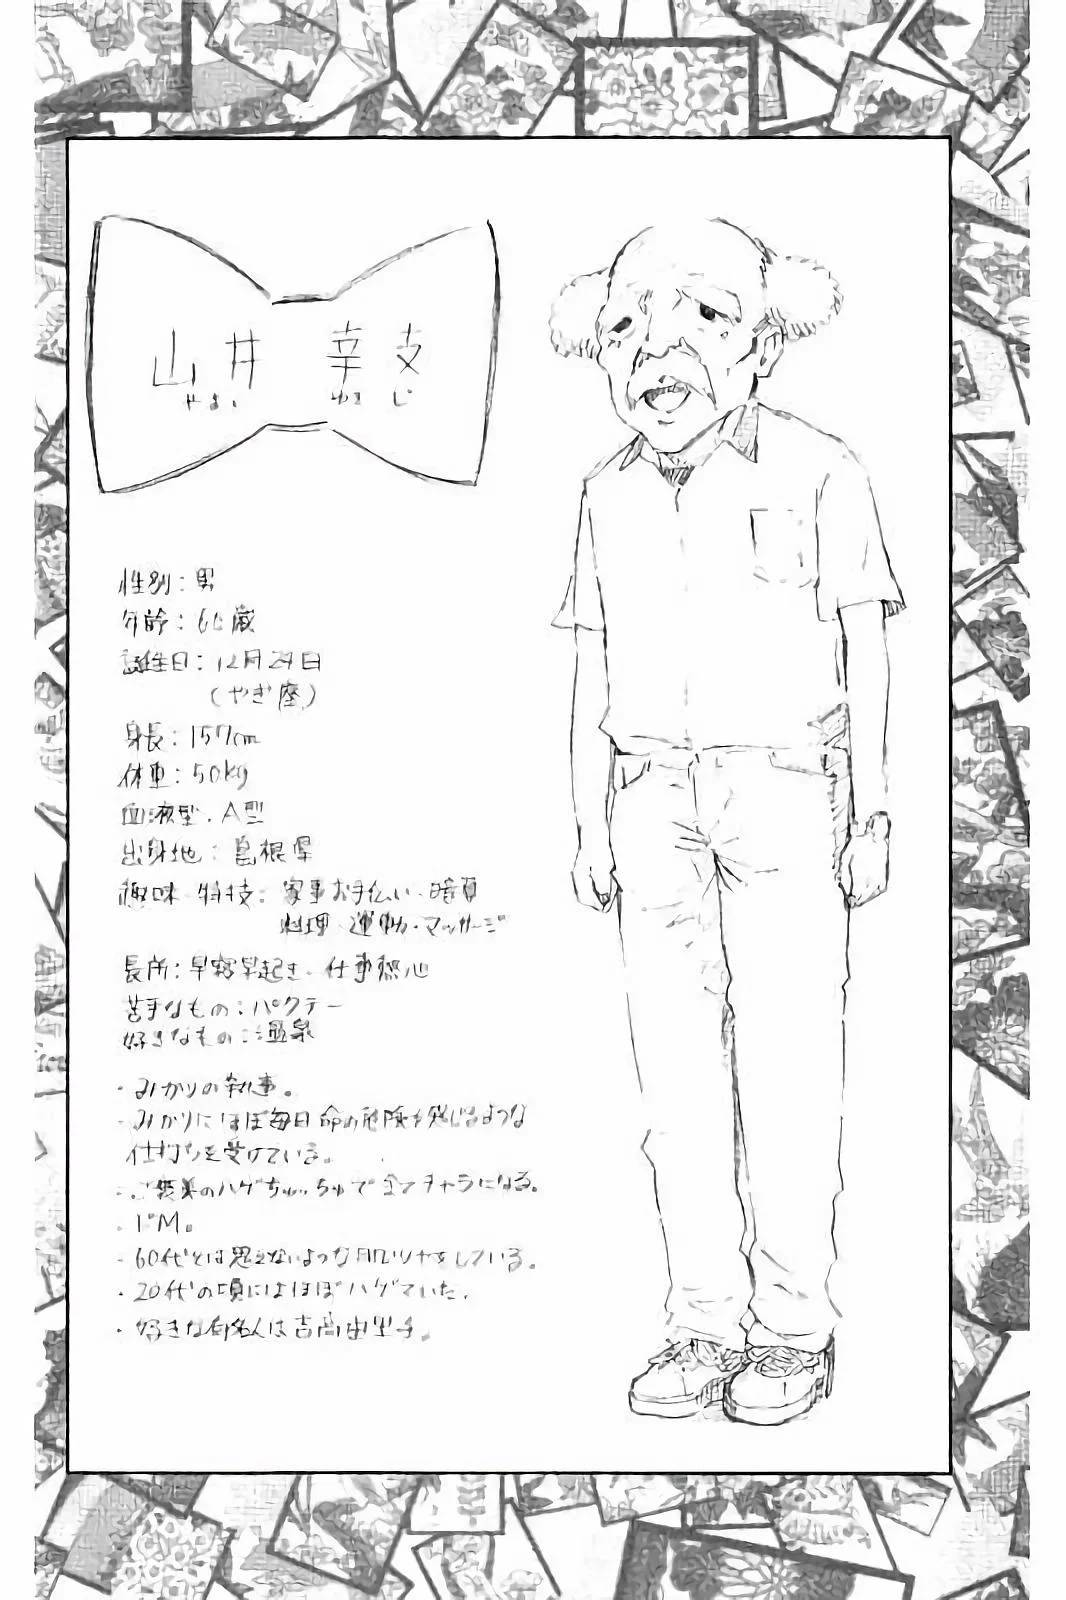 山井 幸支
やまい ゆきじ
性別：男
年齢：66歳
誕生日：12月24日
（やぎ座）
身長：157cm
体重：50kg
血液型：A型
出身地：島根県
趣味・特技：家事お手伝い・暗算
料理・運動・マッサージ
長所：早寝早起き・仕事熱心
苦手なもの：パクチー
好きなもの：温泉
・みかりの執事。
・みかりにほぼ毎日命の危険を感じるような
仕打ちを受けている。
・ご褒美のハゲちゅっちゅで全てチャラになる。
・ドM。
・60代とは思えないような
をしている。
・20代の頃にはほぼハゲていた。
・好きな有名人は吉高由里子。